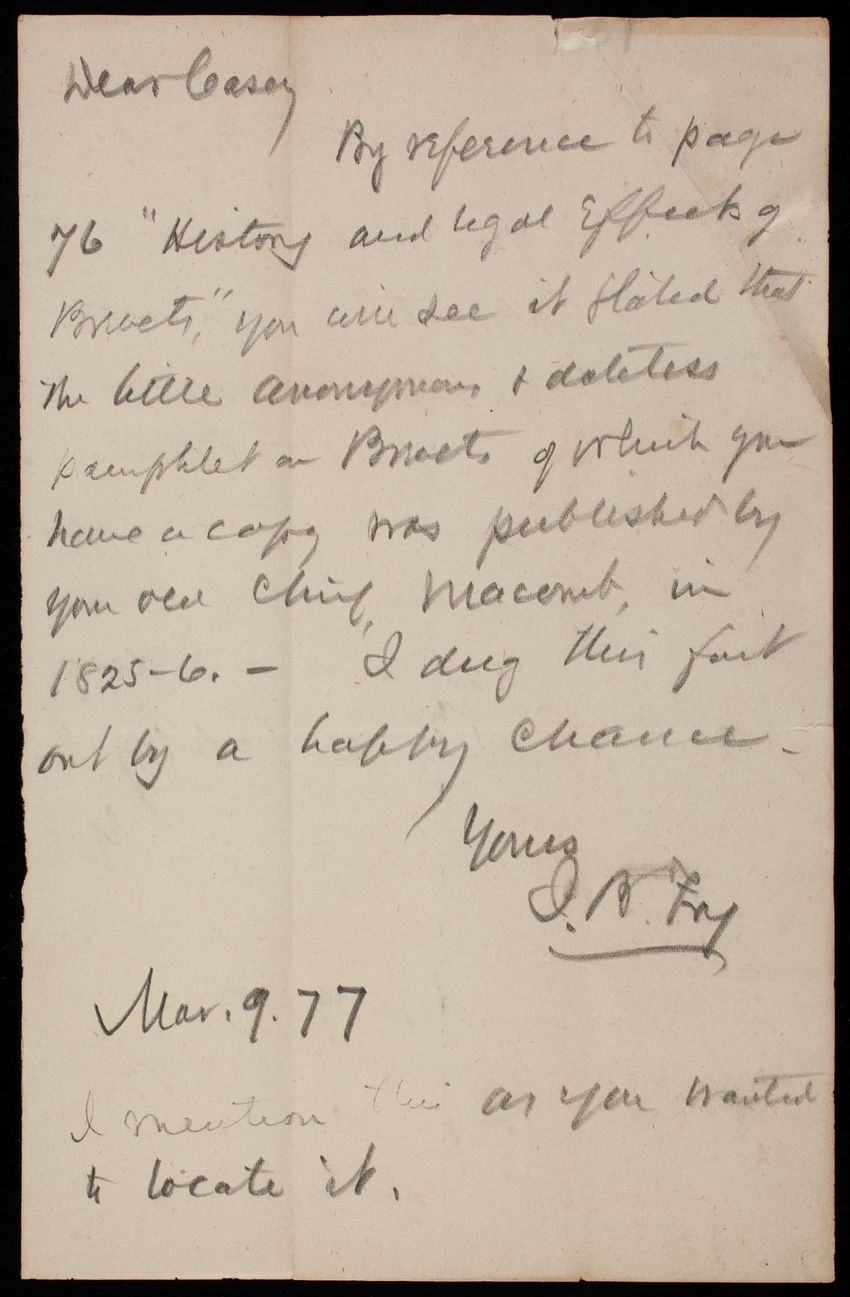 Dear Casey
By reference to page
76 "History and legal Effects of
Brevets," you will see it stated that
the little anonymous & dateless
pamphlet on Brevets of which you
have a copy was published by
your old Chief, Macomb, in
1825-6. - I dug this fact
out by a happy chance -
Yours
J. B. Fry
Mar. 9. 77
I mention this as you wanted
to locate it.